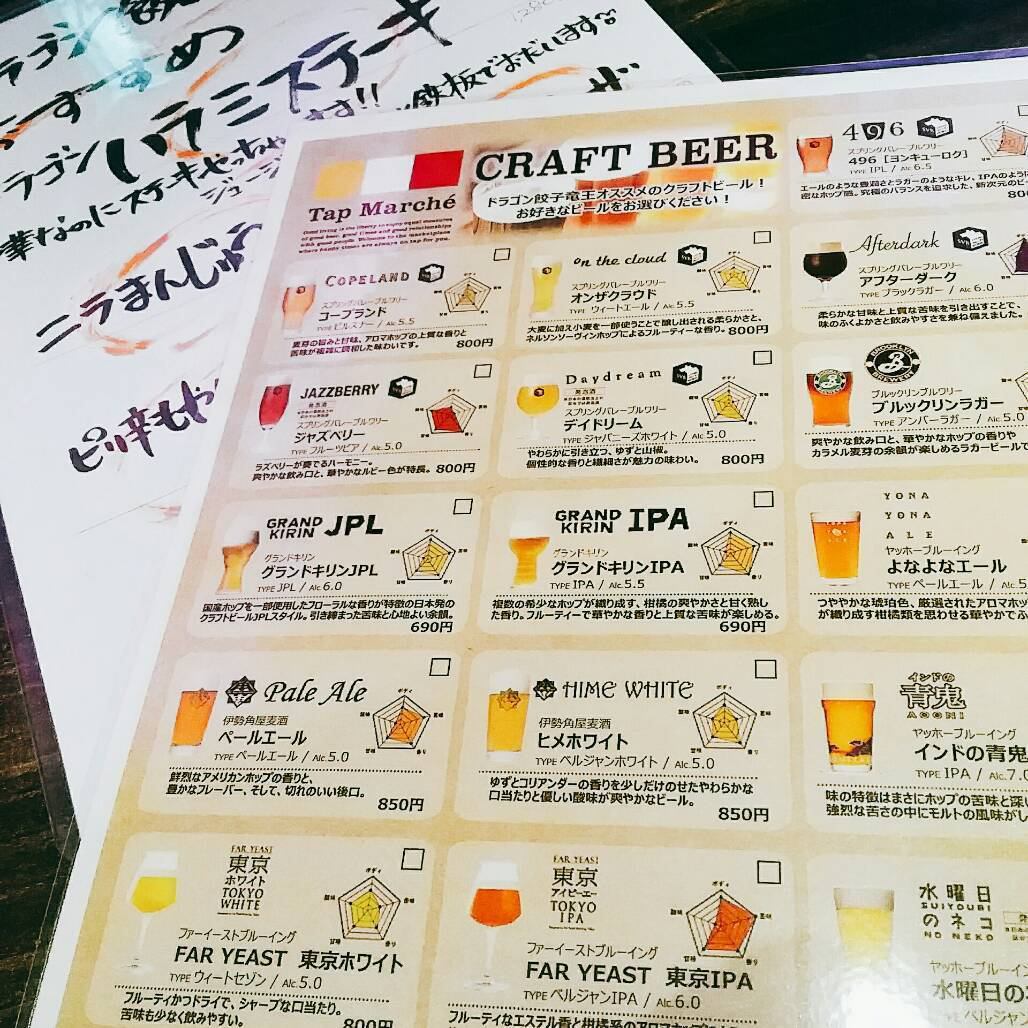 ハラミステーキ
ニラまんじゅう
CRAFT BEER
Tap Marché
ドラゴン餃子竜王オススメのクラフトビール！
お好きなビールをお選びください！
COPELAND
スプリングバレーブルワリー
コープランド
TYPE ピルスナー / Alc 5.5
麦芽の旨みと甘味、アロマホップの上質な香りと
苦味が複雑に調和した味わいです。
800円
on the cloud
スプリングバレーブルワリー
オンザクラウド
TYPE ウィートエール / Alc 5.5
大麦に加え小麦を一部使うことで醸し出される柔らかさと、
ネルソンソーヴィンホップによるフルーティーな香り。 800円
496
スプリングバレーブルワリー
496［ヨンキューロク］
TYPE IPL / Alc 6.5
Afterdark
スプリングバレーブルワリー
アフターダーク
TYPE ブラックラガー / Alc 6.0
柔らかな甘味と上質な苦味を引き出すことで、
味のふくよかさと飲みやすさを兼ね備えました。
JAZZBERRY
発泡酒
スプリングバレーブルワリー
ジャズベリー
TYPE フルーツビア / Alc 5.0
ラズベリーが奏でるハーモニー。
爽やかな飲み口と、華やかなルビー色が特長。 800円
Daydream
発泡酒
スプリングバレーブルワリー
デイドリーム
TYPE ジャパニーズホワイト / Alc 5.0
やわらかに引き立つ、ゆずと山椒。
個性的な香りと繊細さが魅力の味わい。 800円
BROOKLYN
BREWERY
ブルックリンブルワリー
ブルックリンラガー
TYPE アンバーラガー / Alc 5.0
爽やかな飲み口と、華やかなホップの香りや
カラメル麦芽の余韻が楽しめるラガービールで
GRAND KIRIN JPL
グランドキリン
グランドキリンJPL
TYPE JPL / Alc 6.0
国産ホップを一部使用したフローラルな香りが特徴の日本発の
クラフトビールJPLスタイル。引き締まった苦味と心地よい余韻。
690円
GRAND KIRIN IPA
グランドキリン
グランドキリンIPA
TYPE IPA / Alc 5.5
複数の希少なホップが織り成す、柑橘の爽やかさと甘く熟し
た香り。フルーティーで華やかな香りと上質な苦味が楽しめる。
690円
YONA
YONA
ALE
ヤッホーブルーイング
よなよなエール
TYPE ペールエール / Alc 5.
つややかな琥珀色、厳選されたアロマホッ
が織り成す柑橘類を思わせる華やかでふ
Pale Ale
伊勢角屋麦酒
ペールエール
TYPE ペールエール / Alc 5.0
鮮烈なアメリカンホップの香りと、
豊かなフレーバー、そして、切れのいい後口。
850円
HIME WHITE
伊勢角屋麦酒
ヒメホワイト
TYPE ベルジャンホワイト / Alc 5.0
ゆずとコリアンダーの香りを少しだけのせたやわらかな
口当たりと優しい酸味が爽やかなビール。
850円
インドの
青鬼
AOONI
ヤッホーブルーイング
インドの青鬼
TYPE IPA / Alc 7.0
味の特徴はまさにホップの苦味と深い
強烈な苦さの中にモルトの風味がし
FAR YEAST
東京
ホワイト
TOKYO
WHITE
ファーイーストブルーイング
FAR YEAST 東京ホワイト
TYPE ウィートセゾン / Alc 5.0
フルーティかつドライで、シャープな口当たり。
苦味も少なく飲みやすい。
800円
FAR YEAST
東京
アイピーエー
TOKYO
IPA
ファーイーストブルーイング
FAR YEAST 東京IPA
TYPE ベルジャンIPA / Alc 6.0
フルーティなエステル香と柑橘系のアロマホップ
水曜日
SUIYOUBI
のネコ
NO NEKO
ヤッホーブルーイン
水曜日の
TYPE ベルジャン